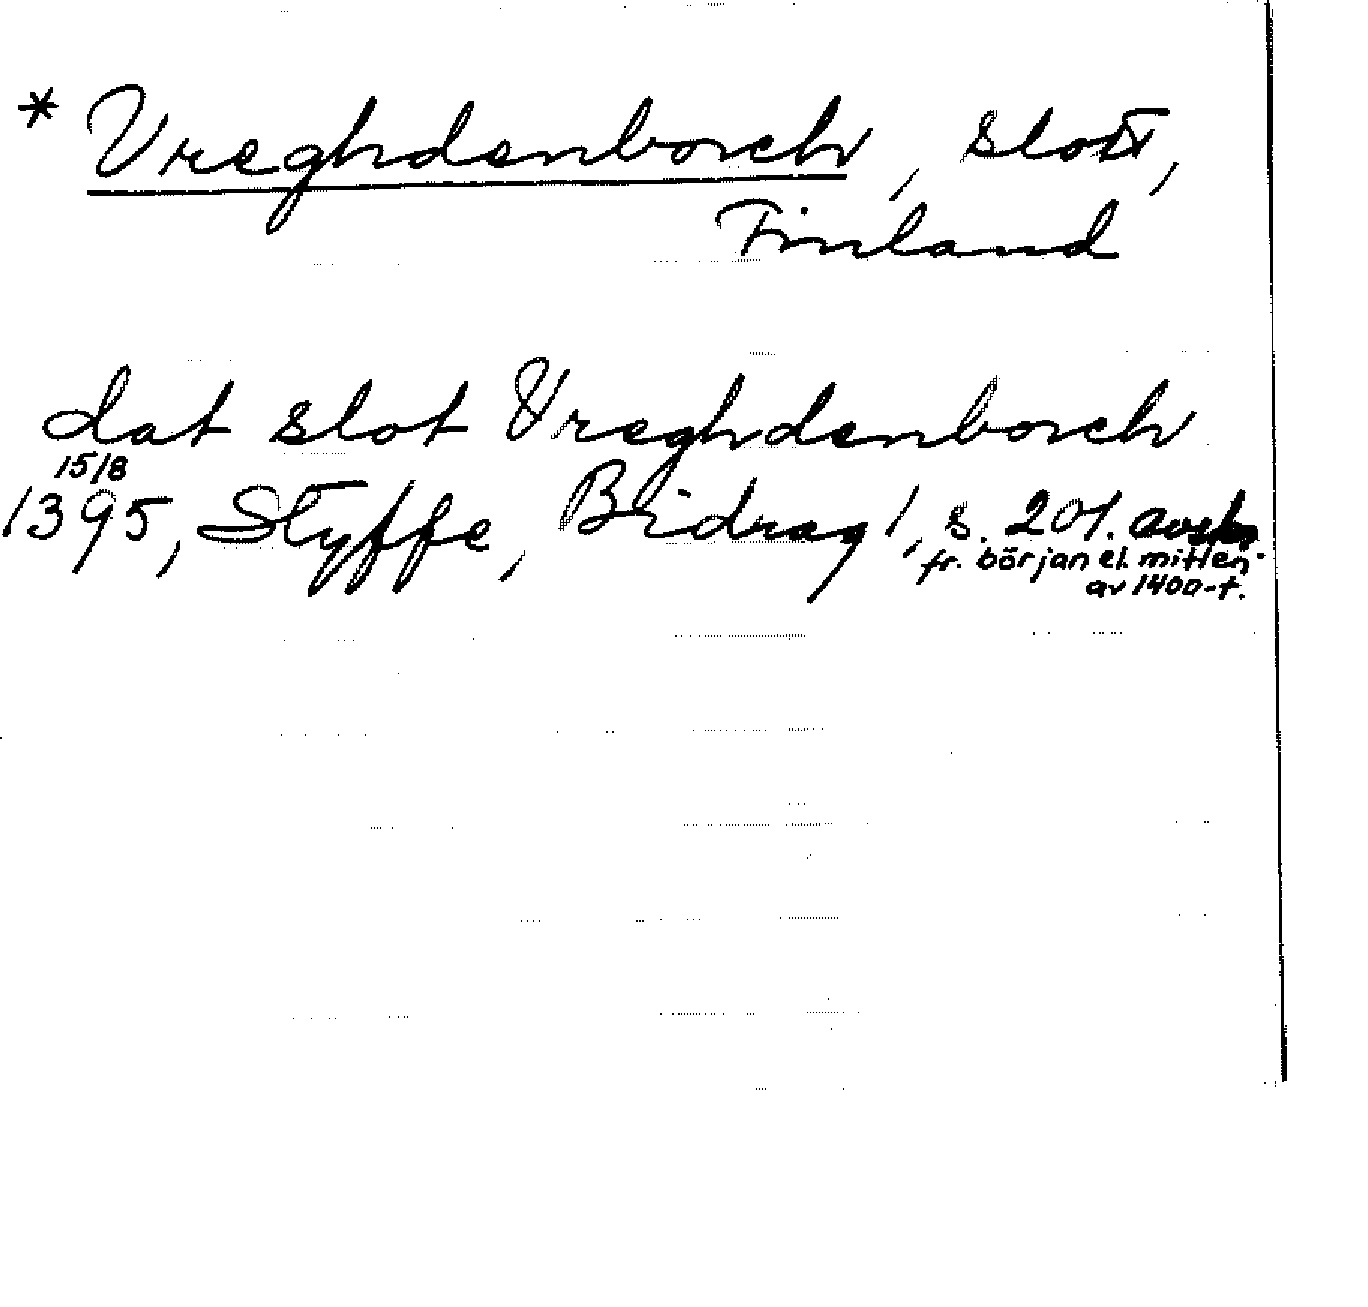 * Vreghdenborch, slott,
Finland
dat slot Vreghdenborch
15/8
1395, Styffe, Bidrag 1, s. 201. avskr
fr. början el. mitten
av 1400-t.